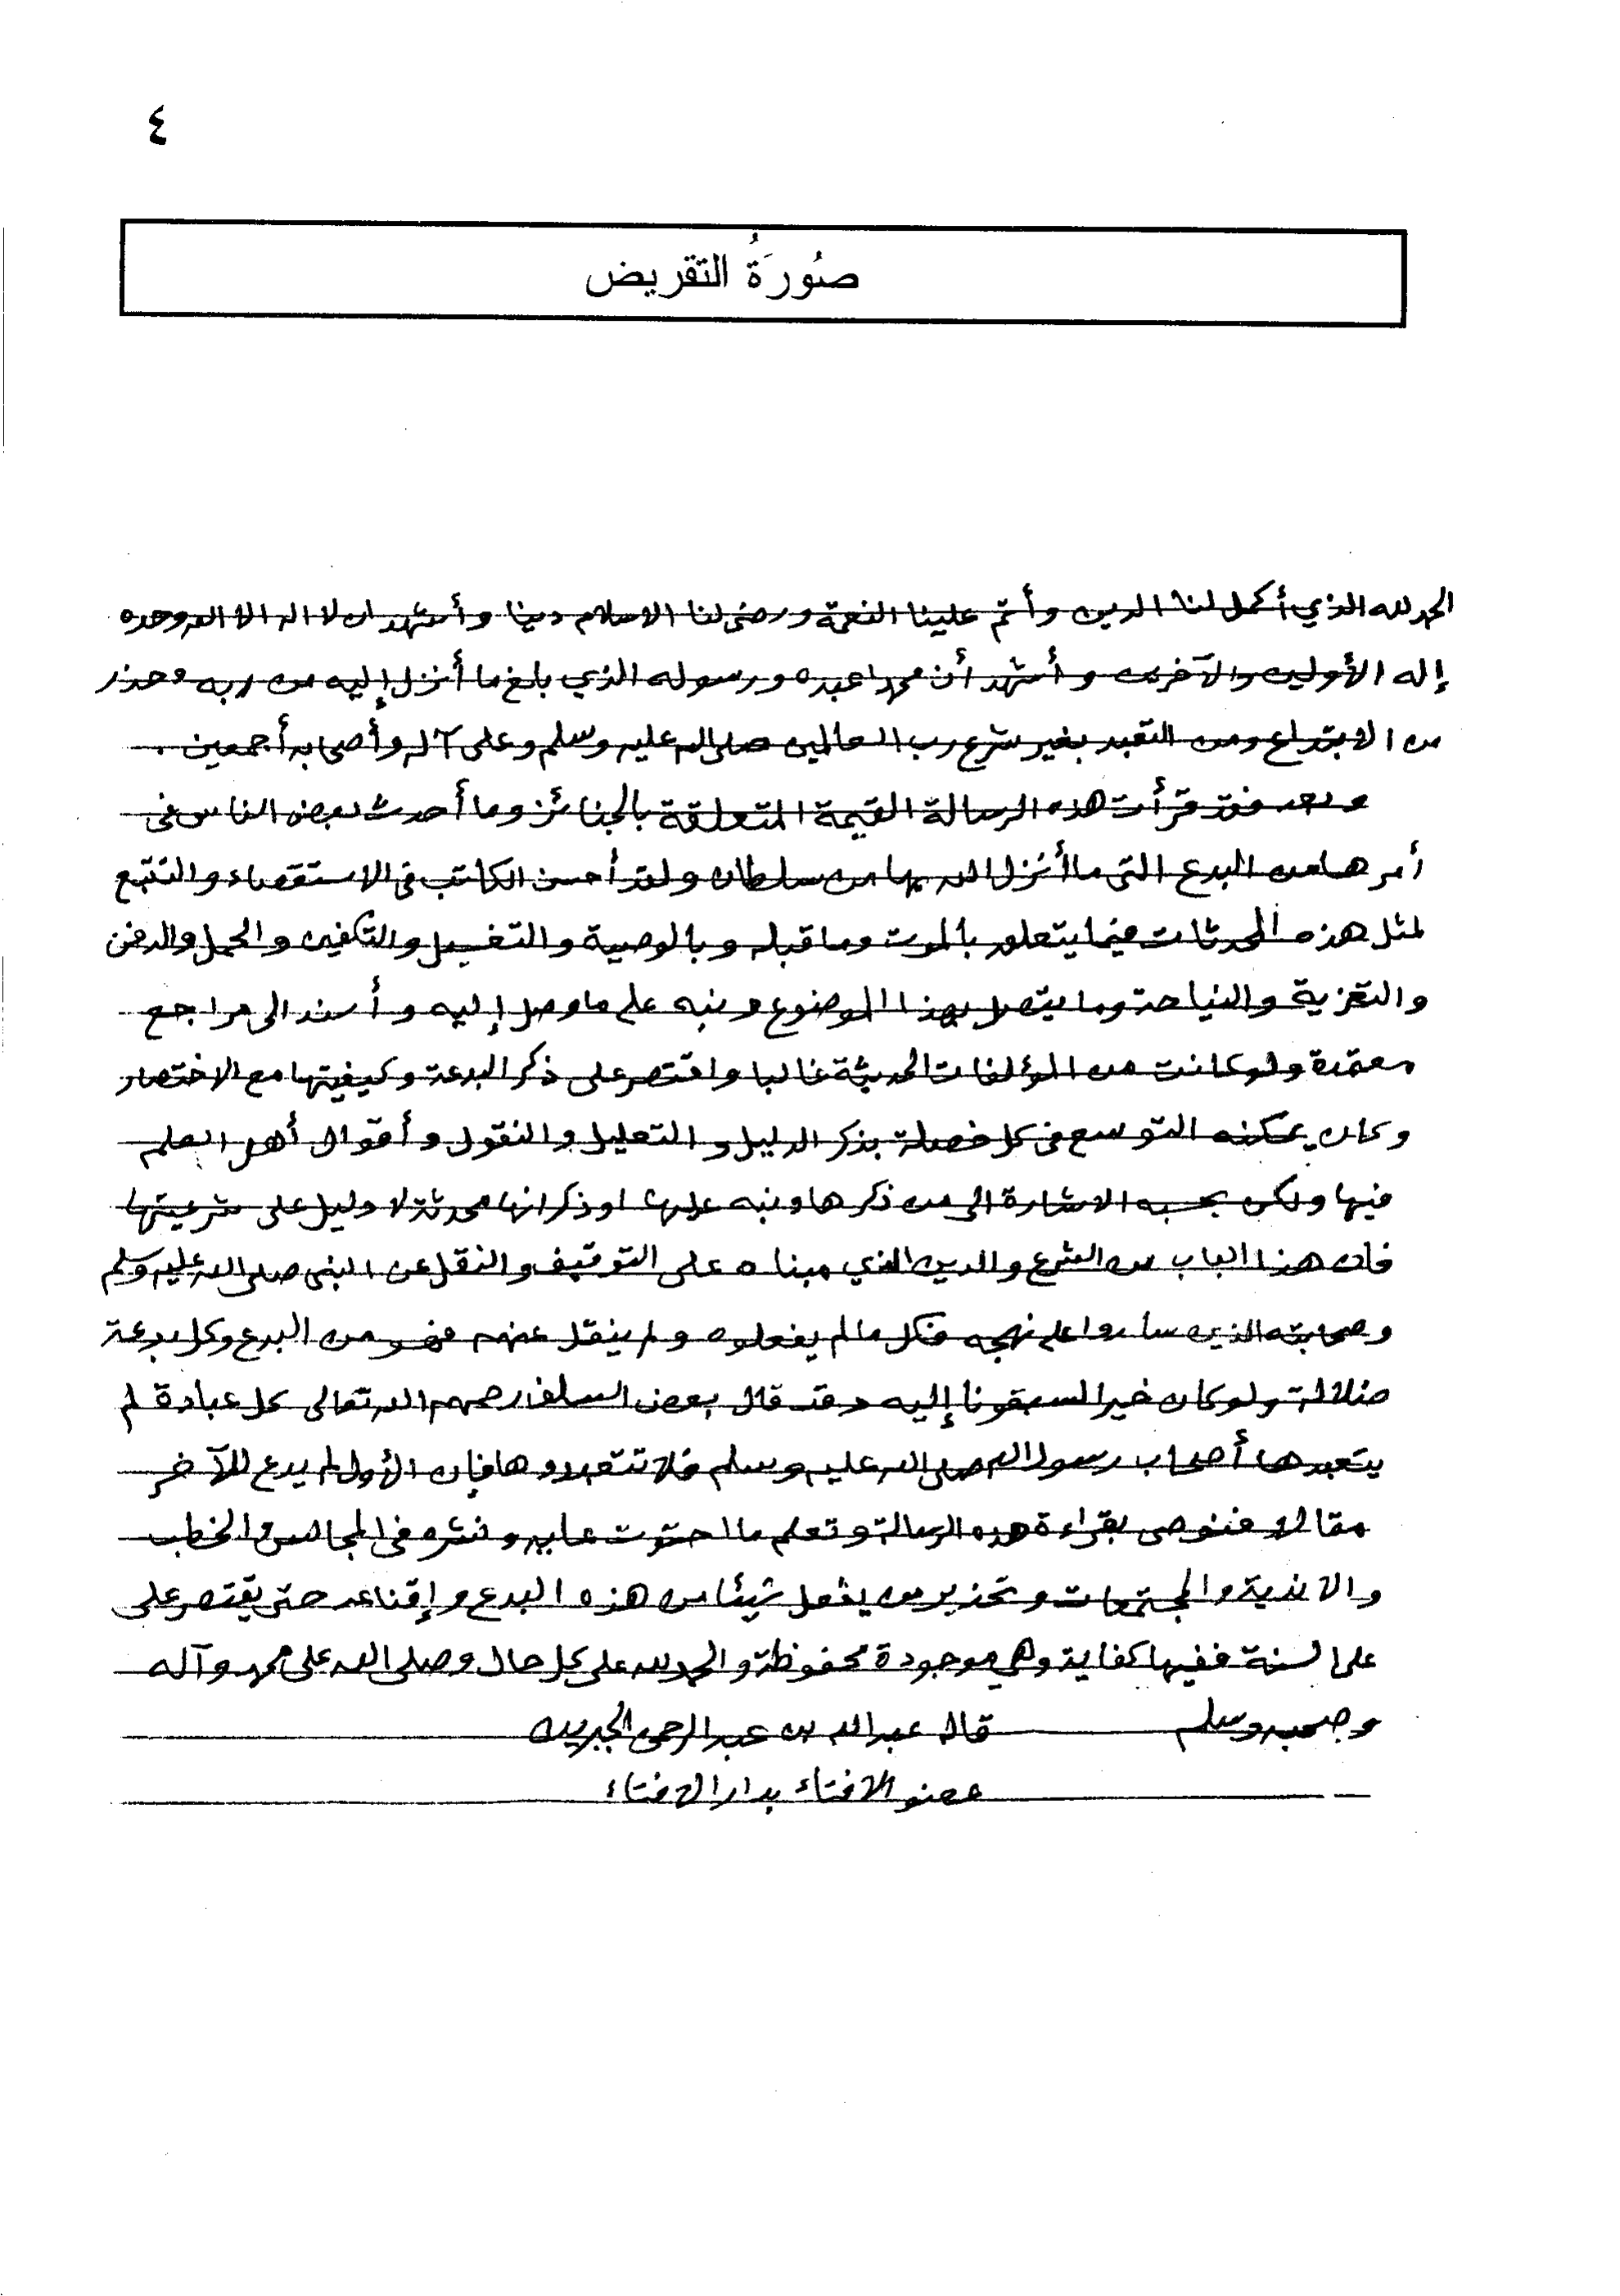 ٤
صُورَةُ التقريض
الحمد لله الذي أكمل لنا الدين وأتم علينا النعمة ورضي لنا الاسلام دينا وأشهد ان لا اله الا الله وحده
إله الأولين والآخرين وأشهد أن محمدا عبده ورسوله الذي بلغ ما أنزل إليه من ربه وحذر
من الابتداع ومن التعبد بغير شرع رب العالمين صلى الله عليه وسلم وعلى آله وأصحابه أجمعين .
وبعد فقد قرأت هذه الرسالة القيمة المتعلقة بالجنائز وما أحدث بعض الناس في
أمرها من البدع التي ما أنزل الله بها من سلطان ولقد أحسن الكاتب في الاستقصاء والتتبع
لمثل هذه المحدثات فيما يتعلق بالموت وما قبله وبالوصية والتغسيل والتكفين والحمل والدفن
والتعزية والنياحة وما يتصل بهذا الموضوع ونبه على ما وصل إليه وأسند الى مراجع
معتمدة ولو كانت من المؤلفات الحديثة غالبا واقتصر على ذكر البدعة وكيفيتها مع الاختصار
وكان يمكنه التوسع في كل خصلة بذكر الدليل والتعليل والنقول وأقوال أهل العلم
فيها ولكن بحسبه الاشارة الى من ذكرها ونبه عليها او ذكر انها محدثة لا دليل على شرعيتها
فان هذا الباب من الشرع والدين الذي مبناه على التوقيف والنقل عن النبي صلى الله عليه وسلم
وصحابته الذين ساروا على نهجه فكل ما لم يفعلوه ولم ينقل عنهم فهو من البدع وكل بدعة
ضلالة ولو كان خيرا لسبقونا إليه وقد قال بعض السلف رحمهم الله تعالى كل عبادة لم
يتعبدها أصحاب رسول الله صلى الله عليه وسلم فلا تتعبدوها فإن الأول لم يدع للآخر
مقالا فنوصي بقراءة هذه الرسالة وتعلم ما احتوت عليه ونشره في المجالس والخطب
والاندية والمجتمعات وتحذير من يفعل شيئا من هذه البدع وإقناعه حتى يقتصر على
على السنة ففيها كفاية وهي موجودة محفوظة والحمد لله على كل حال وصلى الله على محمد وآله
وصحبه وسلم قال عبد الله بن عبد الرحمن الجبرين
عضو الافتاء بدار الافتاء